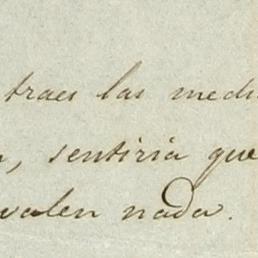 traes las medi
, sentiria que
valen nada.